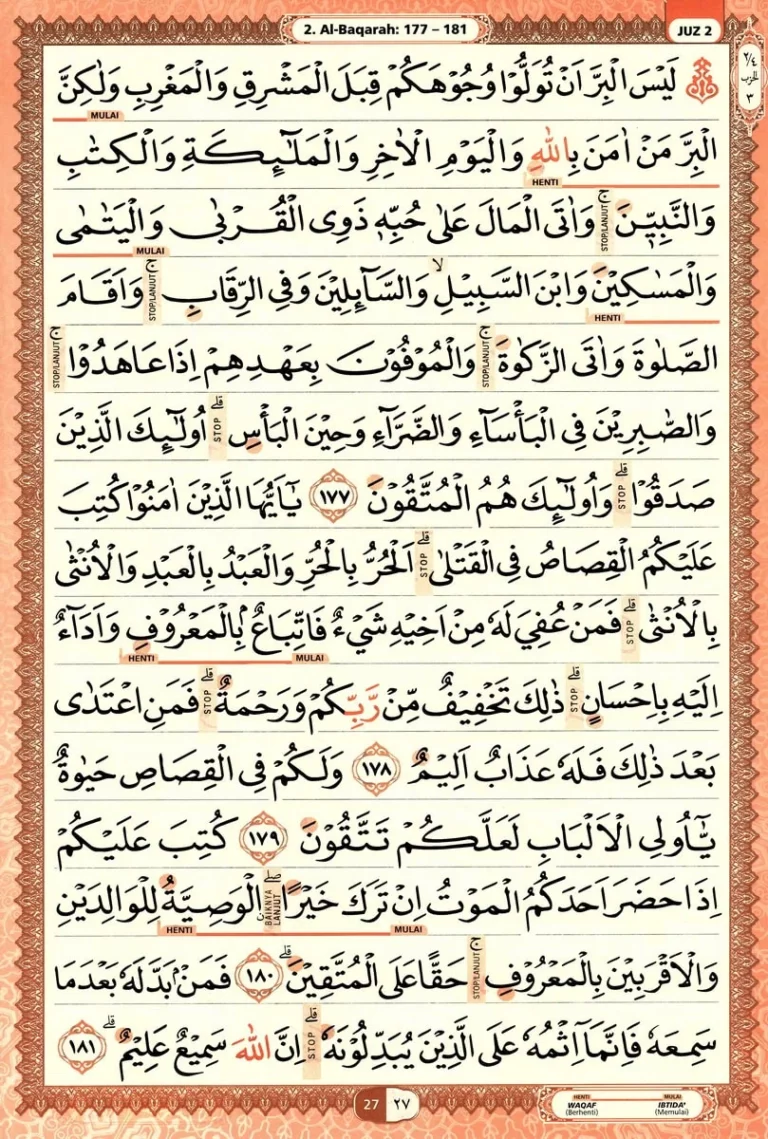 2. Al-Baqarah: 177 – 181
JUZ 2
٢/٤
الحزب
٣
۞ لَيْسَ الْبِرَّاَنْ تُوَلُّوْا وُجُوْهَكُمْ قِبَلَ الْمَشْرِقِ وَالْمَغْرِبِ وَلٰكِنَّ
MULAI
الْبِرَّ مَنْ اٰمَنَ بِاللّٰهِ وَالْيَوْمِ الْاٰخِرِ وَالْمَلٰۤىِٕكَةِ وَالْكِتٰبِ
HENTI
وَالنَّبِيّٖنَۚ STOP/LANJUT وَاٰتَى الْمَالَ عَلٰى حُبِّهٖ ذَوِى الْقُرْبٰى وَالْيَتٰمٰى
MULAI
وَالْمَسٰكِيْنَ وَابْنَ السَّبِيْلِۙ وَالسَّاۤىِٕلِيْنَ وَفِى الرِّقَابِۚ STOP/LANJUT وَاَقَامَ
HENTI
الصَّلٰوةَ وَاٰتَى الزَّكٰوةَۚ STOP/LANJUT وَالْمُوْفُوْنَ بِعَهْدِهِمْ اِذَا عَاهَدُوْاۚ STOP/LANJUT
وَالصّٰبِرِيْنَ فِى الْبَأْسَاۤءِ وَالضَّرَّاۤءِ وَحِيْنَ الْبَأْسِۗ STOP اُولٰۤىِٕكَ الَّذِيْنَ
صَدَقُوْاۗ STOP وَاُولٰۤىِٕكَ هُمُ الْمُتَّقُوْنَ ١٧٧ يٰٓاَيُّهَا الَّذِيْنَ اٰمَنُوْا كُتِبَ
عَلَيْكُمُ الْقِصَاصُ فِى الْقَتْلٰىۗ STOP اَلْحُرُّ بِالْحُرِّ وَالْعَبْدُ بِالْعَبْدِ وَالْاُنْثٰى
بِالْاُنْثٰىۗ STOP فَمَنْ عُفِيَ لَهٗ مِنْ اَخِيْهِ شَيْءٌ فَاتِّبَاعٌۢ بِالْمَعْرُوْفِ وَاَدَاۤءٌ
HENTI MULAI
اِلَيْهِ بِاِحْسَانٍۗ STOP ذٰلِكَ تَخْفِيْفٌ مِّنْ رَّبِّكُمْ وَرَحْمَةٌۗ STOP فَمَنِ اعْتَدٰى
بَعْدَ ذٰلِكَ فَلَهٗ عَذَابٌ اَلِيْمٌ ١٧٨ وَلَكُمْ فِى الْقِصَاصِ حَيٰوةٌ
يّٰٓاُولِى الْاَلْبَابِ لَعَلَّكُمْ تَتَّقُوْنَ ١٧٩ كُتِبَ عَلَيْكُمْ
اِذَا حَضَرَ اَحَدَكُمُ الْمَوْتُ اِنْ تَرَكَ خَيْرًاۖ BAIKNYA LANJUT ۨالْوَصِيَّةُ لِلْوَالِدَيْنِ
HENTI MULAI
وَالْاَقْرَبِيْنَ بِالْمَعْرُوْفِۚ STOP/LANJUT حَقًّا عَلَى الْمُتَّقِيْنَۗ ١٨٠ فَمَنْۢ بَدَّلَهٗ بَعْدَمَا
سَمِعَهٗ فَاِنَّمَآ اِثْمُهٗ عَلَى الَّذِيْنَ يُبَدِّلُوْنَهٗۗ STOP اِنَّ اللّٰهَ سَمِيْعٌ عَلِيْمٌۗ ١٨١
27 ٢٧
HENTI MULAI
WAQAF IBTIDA'
(Berhenti) (Memulai)